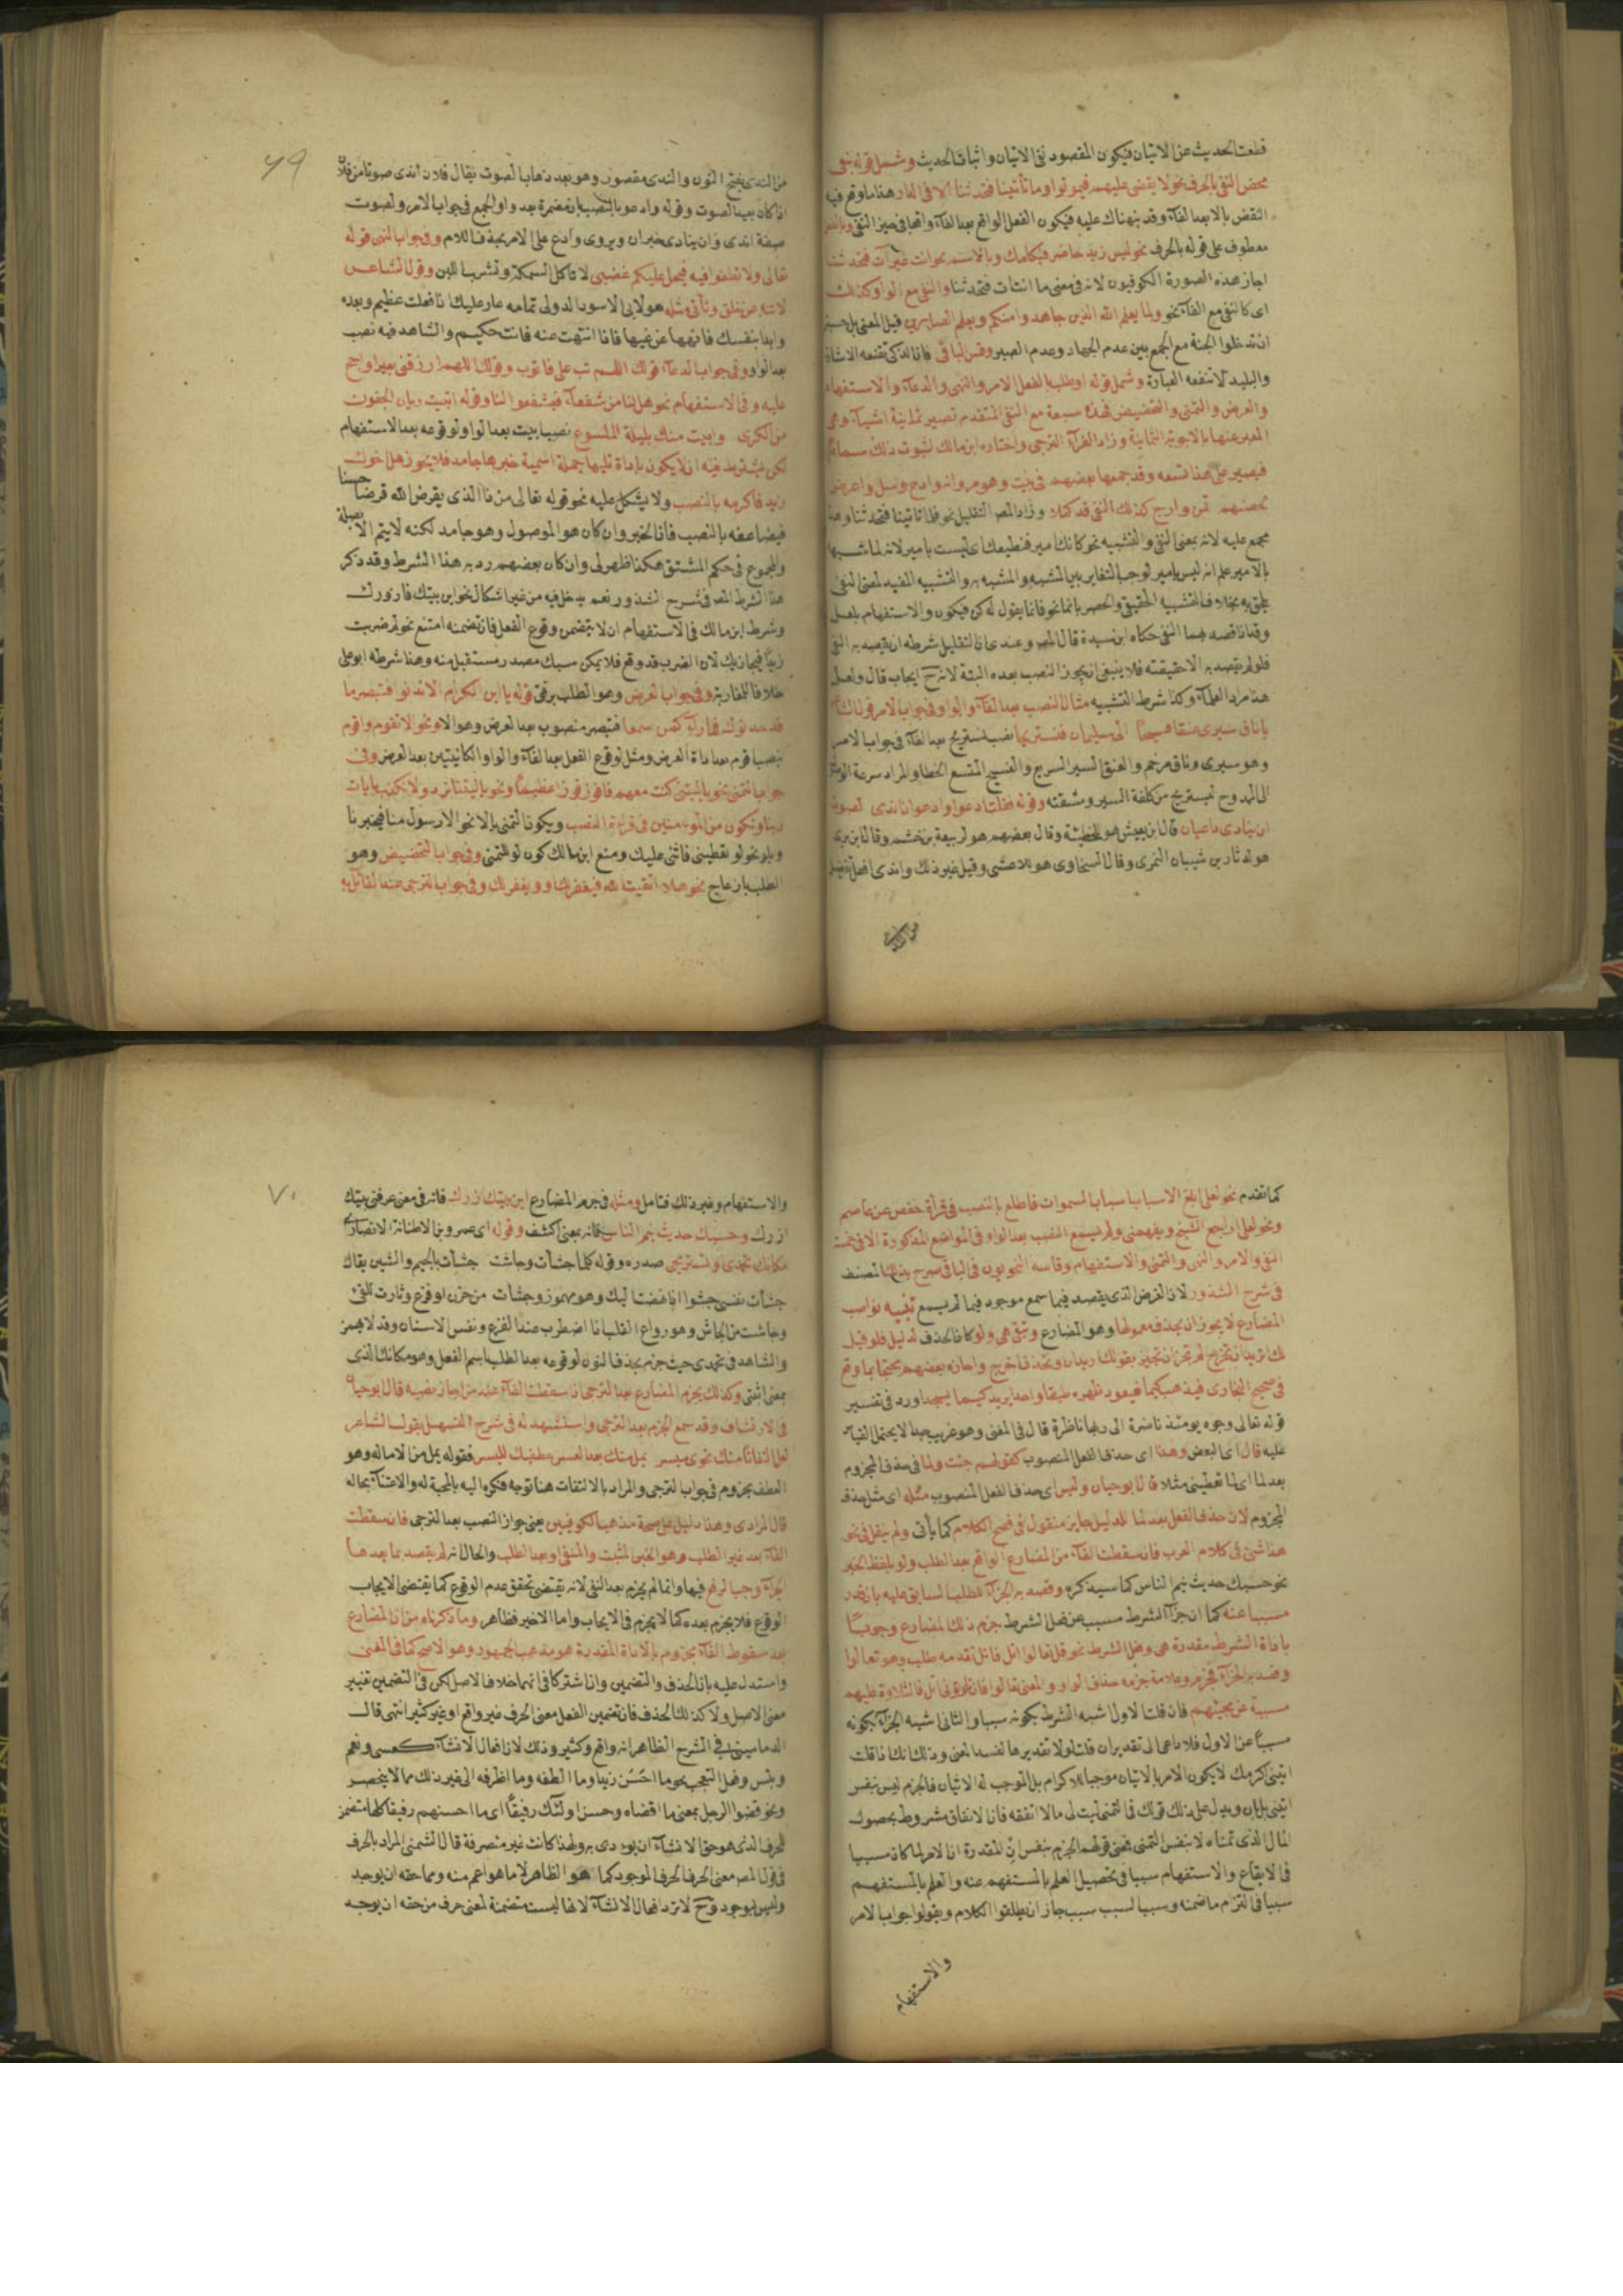 قطعت الحديث عن الاتيان فيكون المقصود نفى الاتيان واثبات الحديث وشمل قوله نفى
محض النفى بالحرف نحو لا يقضى عليهم فيموتوا وما تأتينا فتحدثنا الا فى الدار هذا ما وقع فيه
النقض بالا بعد الفآء وقد نبهناك عليه فيكون الفعل الواقع بعد الفآء واقعا فى حيز النفى
معطوف على قوله بالحرف نحو ليس زيد حاضر فيكلمك وبالاسم نحو انت غير آت فتحدثنا
اجاز هذه الصورة الكوفيون لانه فى معنى ما انت آت فتحدثنا والنفى مع الواو كذلك
اى كالنفى مع الفآء نحو ولما يعلم الله الذين جاهدوا منكم ويعلم الصابرين قيل المعنى بل حسبتم
ان تدخلوا الجنة مع الجمع بين عدم الجهاد وعدم الصبر وقس الباقى فان الذكى تقنعه الاشارة
والبليد لا تنفعه العبارة وشمل قوله او طلب بالفعل الامر والنهى والدعآء والاستفهام
والعرض والتمنى والتحضيض فهذه سبعة مع النفى المتقدم تصير ثمانية اشيآء وهى
المعبر عنها بالاجوبة الثمانية وزاد الفرآء الترجى واختاره ابن مالك لثبوت ذلك سماعا
فيصير على هذا تسعه وقد جمعها بعضهم فى بيت وهو مر وانه وادع وسل واعرض
لحضهم تمن وارج كذلك النفى قد كملا وزاد المص التقليل نحو قلما تاتينا فتحدثنا وهذا
مجمع عليه لانه بمعنى النفى والتشبيه نحو كانك امير فنطيعك اى ليست بامير لانه لما شبهها
بالامير علم انه ليس بامير لوجوب التغاير بين المشبه والمشبه به والتشبيه المفيد لمعنى النفى
يلحق به بخلاف التشبيه الحقيقى والحصر بانما نحو فانما يقول له كن فيكون والاستفهام بلعل
وقد اناقصد بهما النفى حكاه ابن سيدة قال المص وعندى ان التقليل شرطه ان يقصد به النفى
فلو لم يقصد به الا حقيقته فلا ينبغى ان يجوز النصب بعده البتة لانه ح ايجاب قال ولعل
هذا مراد العلمآء وكذا شرط التشبيه مثال النصب بعد الفآء والواو فى جواب الامر قولك
يا ناق سيرى عنقا فسيحًا الى سليمان فنستريحا نصب نستريح بعد الفآء فى جواب الامر
وهو سيرى وناق مرخم والعنق السير السريع والفسيح المتسع الخطا والمراد سرعة الوصول
الى الممدوح ليستريح من كلفة السير ومشقته وقوله فقلت ادعى وادعو ان اندى لصوت
ان ينادى داعيان قال ابن يعيش هو للحطيئة وقال بعضهم هو لربيعة بن خشم وقال ابن برى
هو لدثار بن شيبان النمرى وقال السخاوى هو للاعشى وقيل غير ذلك واندى افعل تفضيل
من الندى
٦٩
من الندى بفتح النون والندى مقصور وهو بعد ذهاب الصوت يقال فلان اندى صوتا من فلان
اذا كان بعيد الصوت وقوله وادعو بالنصب بان مضمرة بعد واو الجمع فى جواب الامر ولصوت
صفة اندى وان ينادى خبر ان ويروى وادع على الامر بحذف اللام وفى جواب النهى قوله
تعالى ولا تطغوا فيه فيحل عليكم غضبى لا تاكل السمكة وتشرب اللبن وقول الشاعر
لا تنه عن خلق وتأتى مثله هو لابى الاسود الدولى تمامه عار عليك اذا فعلت عظيم وبعده
وابدا بنفسك فانهها عن غيها فاذا انتهت عنه فانت حكيم والشاهد فيه نصب
بعد الواو وفى جواب الدعآء قولك اللهم تب على فاتوب وقولك اللهم ارزقنى بعيرا واحج
عليه وفى الاستفهام نحو هل لنا من شفعآء فيشفعوا لنا وقوله اتبيت ريان الجفون
من الكرى وابيت منك بليلة الملسوع نصب ابيت بعد الواو لوقوعه بعد الاستفهام
لكن يشترط فيه ان لا يكون باداة تليها جملة اسمية خبرها جامد فلا يجوز هل اخوك
زيد فاكرمه بالنصب ولا يشكل عليه نحو قوله تعالى من ذا الذى يقرض الله قرضا حسنا
فيضاعفه بالنصب فان الخبر وان كان هو الموصول وهو جامد لكنه لا يتم الا بصلة
والمجموع فى حكم المشتق هكذا ظهر لى وان كان بعضهم رد به هذا الشرط وقد ذكر
هذا الشرط المص فى شرح الشذور نعم يدخل فيه من غير اشكال نحو اين بيتك فازورك
وشرط ابن مالك فى الاستفهام ان لا يتضمن وقوع الفعل فان تضمنه امتنع نحو لم ضربت
زيدًا فيجازيك لان الضرب قد وقع فلا يمكن سبك مصدر مستقبل منه وهذا شرطه ابو على
خلافا للمغاربة وفى جواب العرض وهو الطلب برفق قوله يا ابن الكرام الا تدنو فتبصر ما
قد حدثوك فما رآء كمن سمعا فتبصر منصوب بعد العرض وهو الا ونحو الا تقوم واقوم
بنصب اقوم بعد اداة العرض ومثل لوقوع الفعل بعد الفآء والواو الكائنتين بعد العرض وفى
جواب التمنى نحو يا ليتنى كنت معهم فافوز فوزا عظيمًا ونحو يا ليتنا نرد ولا نكذب بايات
ربنا ونكون من المومنين فى قراءة النصب ويكون التمنى بالا نحو الا رسول منا فيخبرنا
وبلو نحو لو تعطينى فاثنى عليك ومنع ابن مالك كون لو للتمنى وفى جواب التحضيض وهو
الطلب بازعاج نحو هلا اتقيت الله فيغفر لك او ويغفر لك وفى جواب الترجى عند القائل به
كما تقدم نحو لعلى ابلغ الاسباب اسباب السموات فاطلع بالنصب فى قرآة حفص عن عاصم
ونحو لعلى اراجع الشيخ ويفهمنى ولم يسمع النصب بعد الواو فى المواضع المذكورة الا فى خمسة
النفى والامر والنهى والتمنى والاستفهام وقاسه النحويون فى الباقى صرح بذلك المصنف
فى شرح الشذور لان الغرض الذى يقصد فيما سمع موجود فيما لم يسمع تنبيه نواصب
المضارع لا يجوز ان يحذف معمولها وهو المضارع وتبقى هى ولو كان الحذف لدليل فلو قيل
لك اتريد ان تخرج لم يجز ان تجيز بقولك اريد ان وتحذف اخرج واجازه بعضهم محتجا بما وقع
فى صحيح البخارى فيذهب كيما فيعود ظهره طبقا واحدا يريد كيما يسجد اورد فى تفسير
قوله تعالى وجوه يومئذ ناضرة الى ربها ناظرة قال فى المغنى وهو غريب جدا لا يحتمل القياس
عليه قال اى البعض وهذا اى حذف الفعل المنصوب كقولهم جئت ولما فى حذف المجزوم
بعد لما اى لما تعطينى مثلا قال ابو حيان وليس اى حذف الفعل المنصوب مثله اى مثل حذف
المجزوم لان حذف الفعل بعد لما للدليل جايز منقول فى فصيح الكلام كما يأتى ولم ينقل فى نحو
هذا شئ فى كلام العرب فان سقطت الفآء من المضارع الواقع بعد الطلب ولو بلفظ الخبر
نحو حسبك حديث ينم الناس كما سيذكره وقصد به الجزآء للطلب السابق عليه بان قدر
مسببا عنه كما ان جزآء الشرط مسبب عن فعل الشرط جزم ذلك المضارع وجوبًا
باداة الشرط مقدرة هى وفعل الشرط نحو قل تعالوا اتل فاتل تقدمه طلب وهو تعالوا
وقصد به الجزآء فجزم وعلامة جزمه حذف الواو والمعنى تعالوا فان تاتونى اتل فالتلاوة عليهم
مسببة عن مجيئهم فان قلت الاول اشبه الشرط بكونه سببا والثانى اشبه الجزآء بكونه
مسببًا عن الاول فلا داعى الى تقدير ان قلت لولا تقديرها لفسد المعنى وذلك انك اذا قلت
ايتنى اكرمك لا يكون الامر بالاتيان موجبا للاكرام بل الموجب له الاتيان فالجزم ليس بنفس
ايتنى بل بان ويدل على ذلك قولك فى التمنى ليت لى مالا انفقه فان الانفاق مشروط بحصول
المال الذى تمناه لا بنفس التمنى فمعنى قولهم الجزم بنفس ان المقدرة ان الامر لما كان سببا
فى الايقاع والاستفهام سببا فى تحصيل العلم بالمستفهم عنه والعلم بالمستفهم
سببا فى التزام ما ضمنه وسبب السبب سبب جاز ان يطلقوا الكلام ويقولوا جواب الامر
والاستفهام
٧٠
والاستفهام وغير ذلك فتامل ومثله فى جزم المضارع اين بيتك ازرك فانه فى معنى عرفنى بيتك
ازرك وحسبك حديث ينم الناس فانه بمعنى اكتف وقوله اى عمرو بن الاطنابة الانصارى
مكانك تحمدى او تستريحى صدره وقولى كلما جشأت وجاشت جشأت بالجيم والشين يقال
جشأت نفسى جشوا اذا نهضت اليك وهو مهموز وجشأت من حزن او فزع وثارت للقئ
وجاشت من الجاش وهو رواع القلب اذا اضطرب عند الفزع ونفس الانسان وقد لا يهمز
والشاهد فى تحمدى حيث جزم بحذف النون لوقوعه بعد الطلب باسم الفعل وهو مكانك الذى
بمعنى اثبتى وكذلك يجزم المضارع بعد الترجى اذا سقطت الفآء عند من اجاز نصبه قال ابو حيان
فى الارتشاف وقد سمع الجزم بعد الترجى واستشهد له فى شرح التسهيل بقول الشاعر
لعل التفاتًا منك نحوى ميسر يمل منك بعد العسر عطفيك لليسر فقوله يمل من الاماله وهو
العطف مجزوم فى جواب الترجى والمراد بالالتفات هنا توجه فكره اليه بالمحبة له والاعتنآء بحاله
قال المرادى وهذا دليل على صحة مذهب الكوفيين يعنى جواز النصب بعد الترجى فان سقطت
الفآء بعد غير الطلب وهو الخبر المثبت والمنفى او بعد الطلب والحال انه لم يقصد بما بعدها
الجزآء وجب الرفع فيها وانما لم يجزم بعد النفى لانه يقتضى تحقق عدم الوقوع كما يقتضى الايجاب
الوقوع فلا يجزم بعده كما لا يجزم فى الايجاب واما الاخير فظاهر وما ذكرناه من ان المضارع
بعد سقوط الفآء مجزوم بالاداة المقدرة هو مذهب الجمهور وهو الاصح كما فى المغنى
واستدل عليه بان الحذف والتضمين وان اشتركا فى انهما خلاف الاصل لكن فى التضمين تغيير
معنى الاصل ولا كذلك الحذف فان تضمين الفعل معنى الحرف غير واقع او غير كثير انتهى قال
الدمامينى فى الشرح الظاهر انه واقع وكثير وذلك لان افعال الانشآء كعسى ونعم
وبئس وفعل التعجب نحو ما احسن زيدا وما الطفه وما اظرفه الى غير ذلك مما لا ينحصر
ونحو قضوا الرجل بمعنى ما اقضاه وحسن اولئك رفيقًا اى ما احسنهم رفيقا كلها متضمن
لحرف الذى هو حق الانشآء ان يودى به ولهذا كانت غير متصرفة قال الشمنى المراد بالحرف
فى قول المص معنى الحرف الحرف الموجود كما هو الظاهر لا ما هو اعم منه ومما حقه ان يوجد
وليس بموجود وح لا ترد افعال الانشآء لانها ليست متضمنة لمعنى حرف من حقه ان يوجد